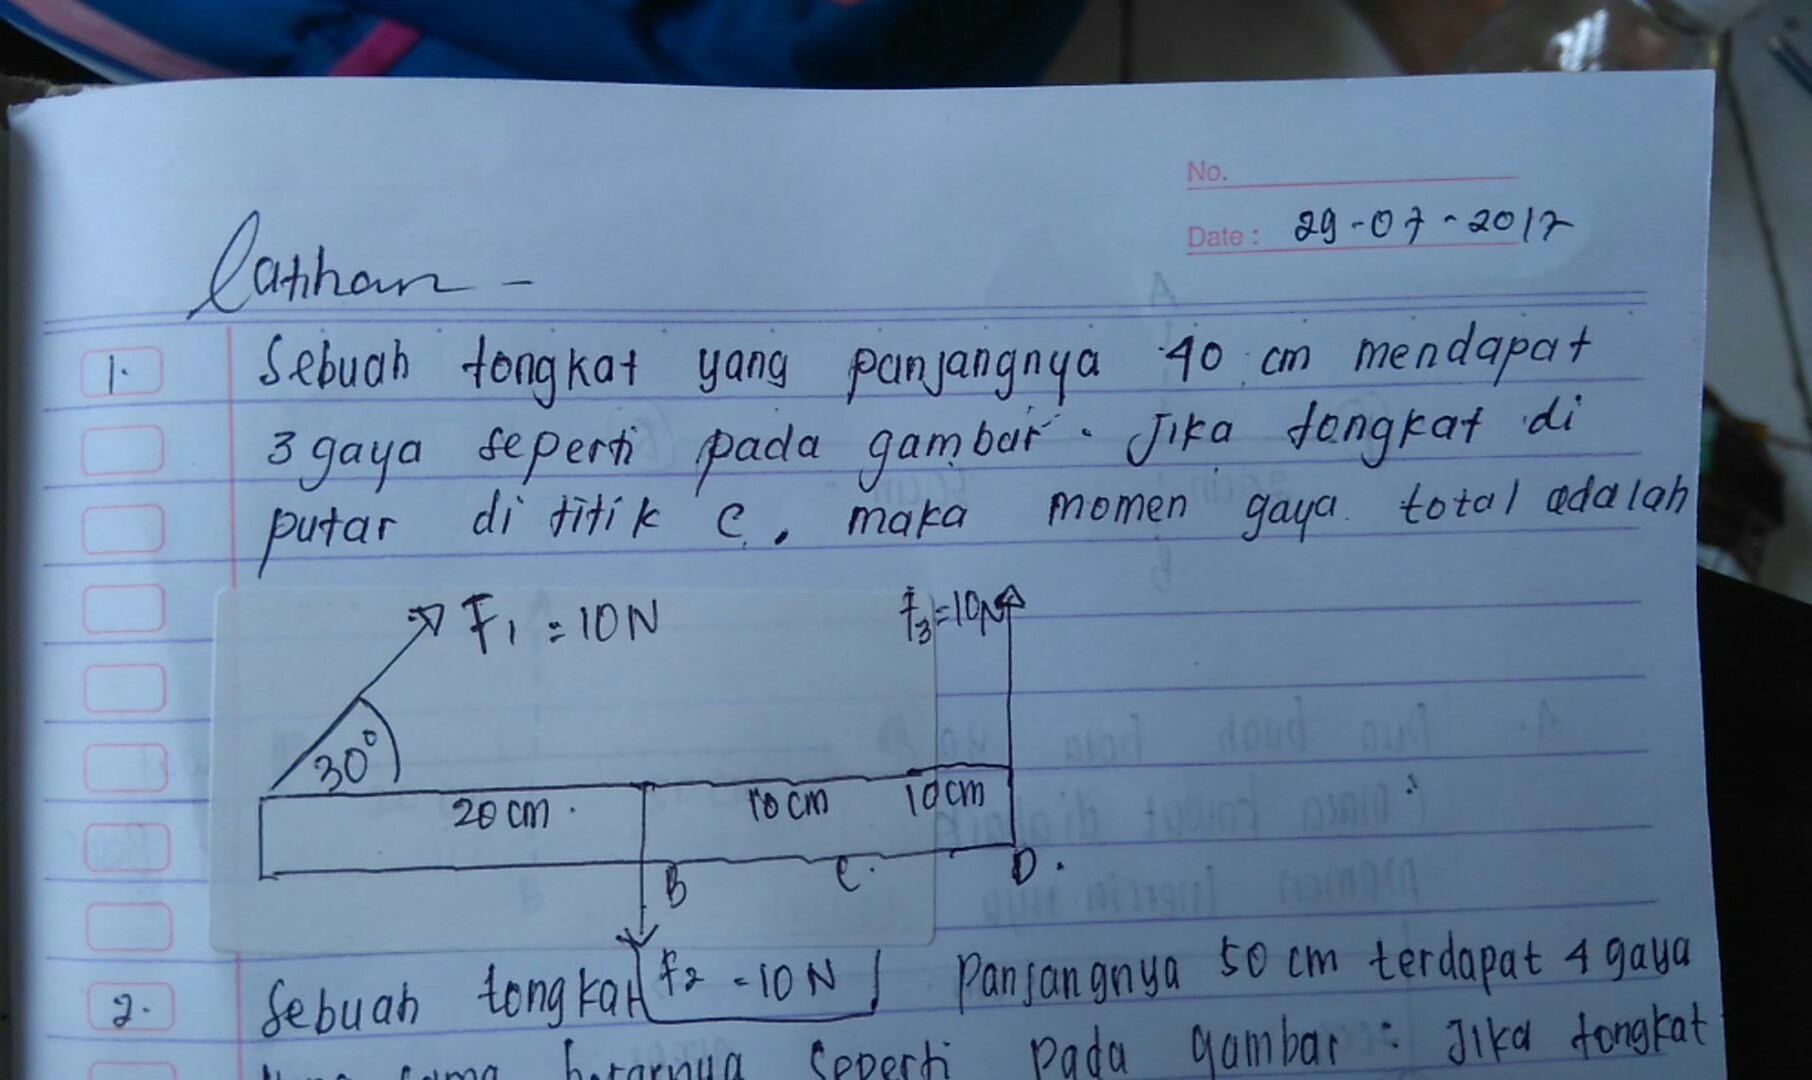 No.
Date: 29-07-2017
Latihan -
1. Sebuah tongkat yang panjangnya 40 cm mendapat
3 gaya seperti pada gambar. Jika tongkat di
putar di titik C, maka momen gaya total adalah
F1 = 10N
f3 = 10N
30°
20 cm
10 cm
10 cm
B
C.
D.
f2 = 10 N
2. Sebuah tongkat panjangnya 50 cm terdapat 4 gaya
sama besarnya seperti pada gambar: Jika tongkat